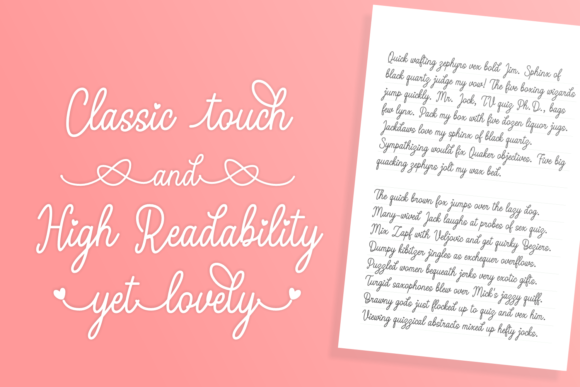 Classic touch
and
High Readability
yet lovely
Quick wafting zephyrs vex bold Jim. Sphinx of
black quartz judge my vow! The five boxing wizards
jump quickly. Mr. Jock, TV quiz Ph.D., bags
few lynx. Pack my box with five dozen liquor jugs.
Jackdaws love my sphinx of black quartz.
Sympathizing would fix Quaker objectives. Five big
quacking zephyrs jolt my wax bed.
The quick brown fox jumps over the lazy dog.
Many-wived Jack laughs at probes of sex quiz.
Mix Zapf with Veljovic and get quirky Beziers.
Dumpy kibitzer jingles as exchequer overflows.
Puzzled women bequeath jerks very exotic gifts.
Turgid saxophones blew over Mick's jazzy quiff.
Brawny gods just flocked up to quiz and vex him.
Viewing quizzical abstracts mixed up hefty jocks.